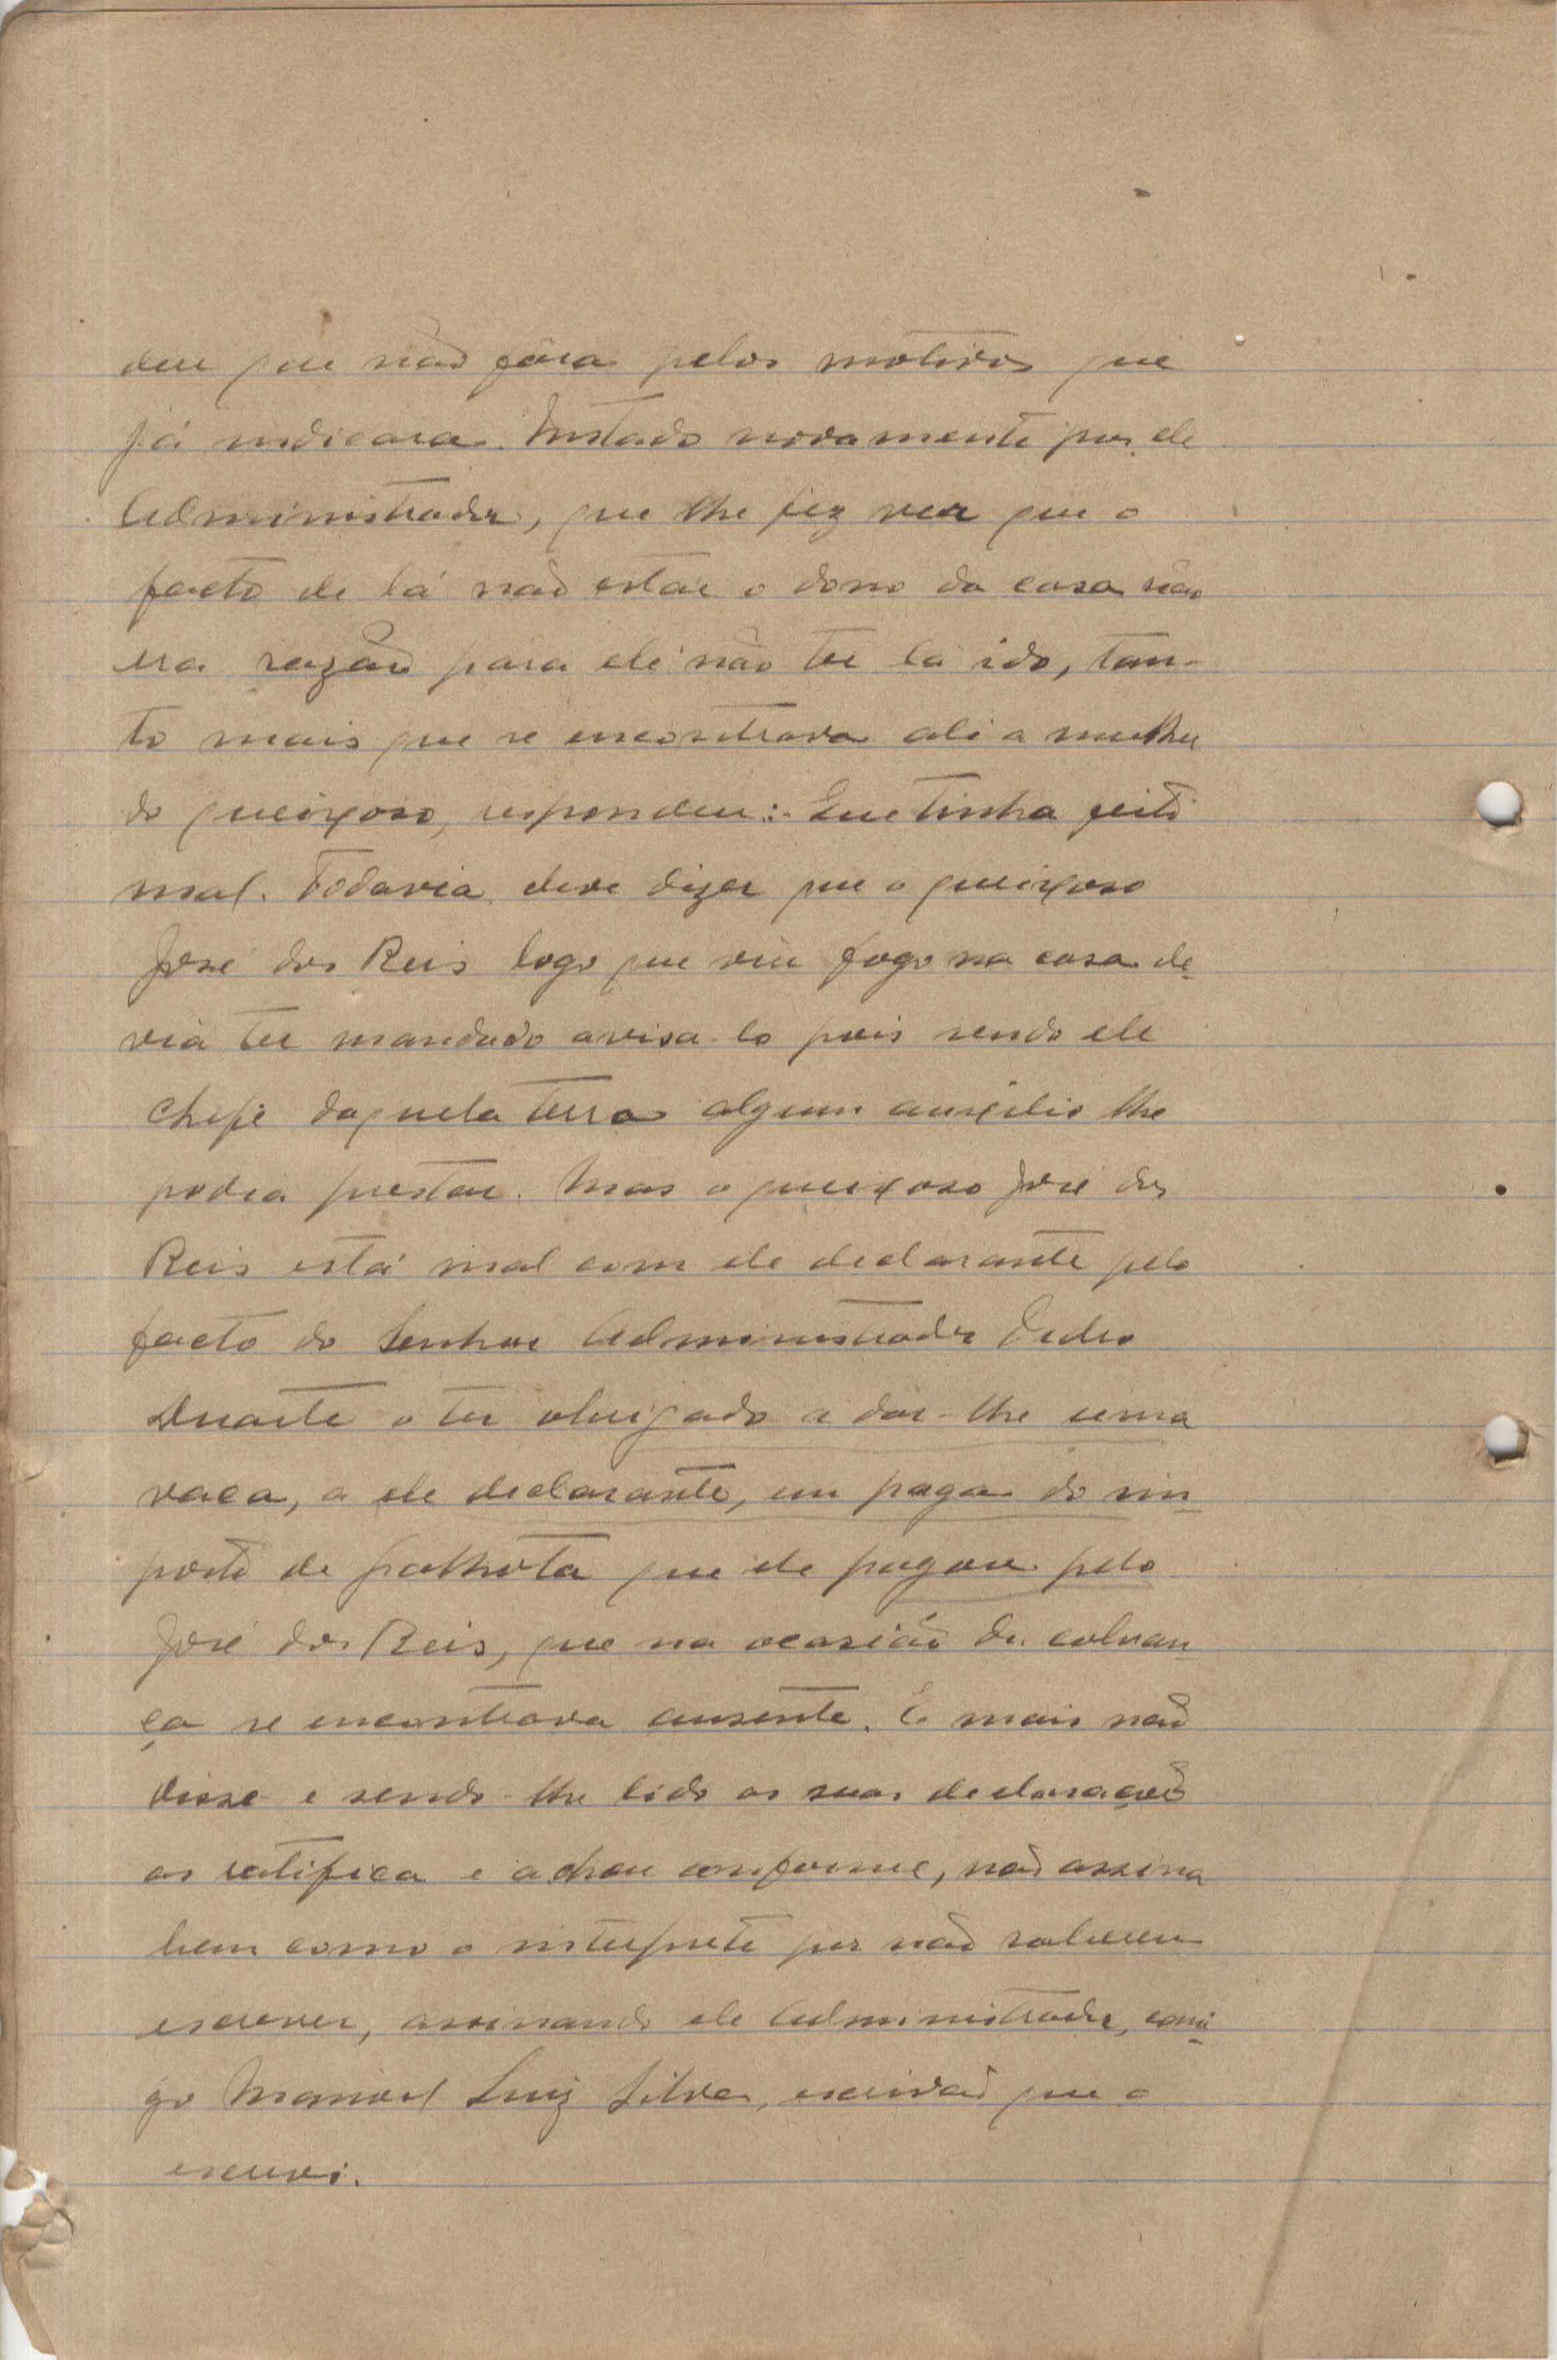 deu que não fôra pelos motivos que
já indicara. Instado novamente por ele
Administrador, que lhe fez ver que o
facto de lá não estar o dono da casa não
era razão para ele não ter lá ido, tan-
to mais que se encontrava ali a mulher
do queixoso, respondeu:- Que tinha feito
mal. Todavia deve dizer que o queixoso
José dos Reis logo que viu fogo na casa de-
via ter mandado avisa-lo pois sendo ele
chefe daquela terra algum auxilio lhe
podia prestar. Mas o queixoso José dos
Reis está mal com ele declarante pelo
facto do Senhor Administrador Pedro
Duarte o ter obrigado a dar-lhe uma
vaca, a ele declarante, em paga do im-
posto de palhota que ele pagou pelo
José dos Reis, que na ocasião da cobran-
ça se encontrava ausente. E mais não
disse e sendo-lhe lido as suas declarações
as ratifica e achou conforme, não assina
bem como o interprete por não saberem
escrever, assinando ele Administrador, comi-
go Manoel Luiz Silva, escrivão que o
escrevi.